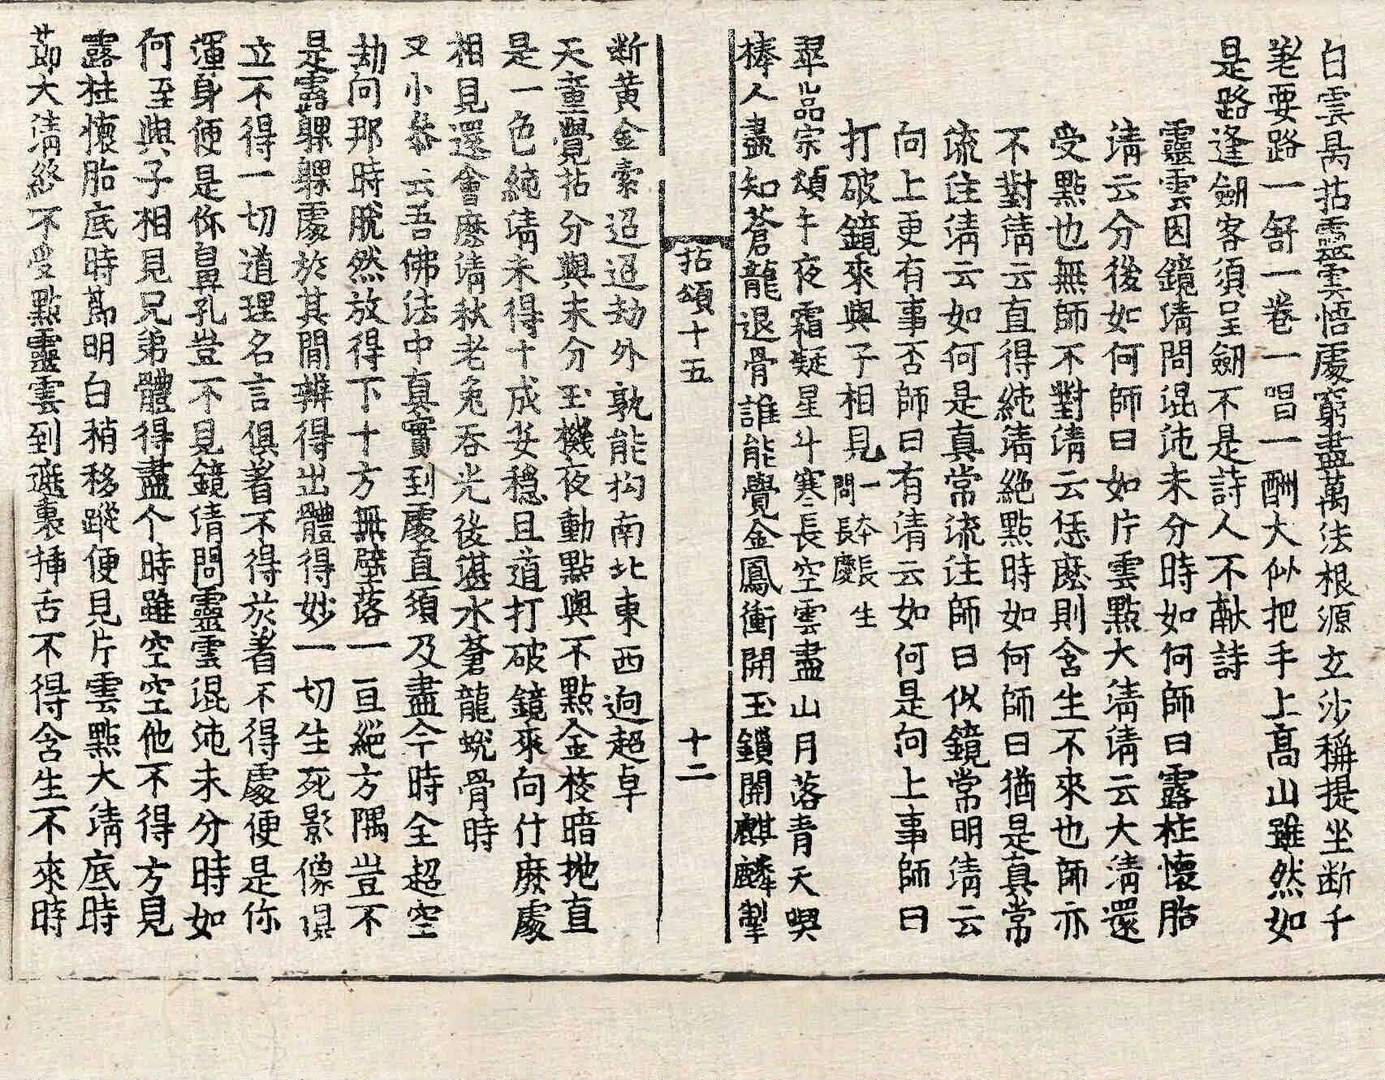 白雲昺拈靈雲悟處窮盡萬法根源立沙稱提坐断千
老要路一舒一卷一唱一酬大似把手上高山雖然如
是路逢劒客須呈劒不是詩人不献詩
靈雲因鏡淸問混沌未分時如何師曰露柱懷胎
淸云分後如何師曰如片雲點大淸淸云大淸還
受點也無師不對淸云恁麽則含生不來也師亦
不對淸云直得純淸絕點時如何師曰猶是真常
流注淸云如何是真常流注師曰似鏡常明淸云
向上更有事否師曰有淸云如何是向上事師曰
打破鏡來與子相見一本長生問長慶
翠嵓宗頌午夜霜凝星斗寒長空雲盡山月落青天喫
棒人盡知蒼龍退骨誰能覺金鳳衝開玉鎖開麒麟掣
拈頌十五
十二
断黄金索迢迢劫外孰能拘南北東西逈超卓
天童覺拈分與未分玉機夜動點與不點金梭暗抛直
是一色純淸未得十成安穩且道打破鏡來向什麽處
相見還會麽淸秋老兔吞光後湛水蒼龍蛻骨時
又小叅云吾佛法中真實到處直須及盡今時全超空
劫向那時脫然放得下十方無壁落一亘絕方隅豈不
是露躶躶處於其間辨得出體得妙一切生死影像俱
立不得一切道理名言俱着不得於着不得處便是你
渾身便是你鼻孔豈不見鏡淸問靈雲混沌未分時如
何至與子相見兄弟體得盡个時雖空空他不得方見
露柱懷胎底時莭明白稍移蹤便見片雲點大淸底時
莭大淸終不受點靈雲到遮裏揷舌不得含生不來時